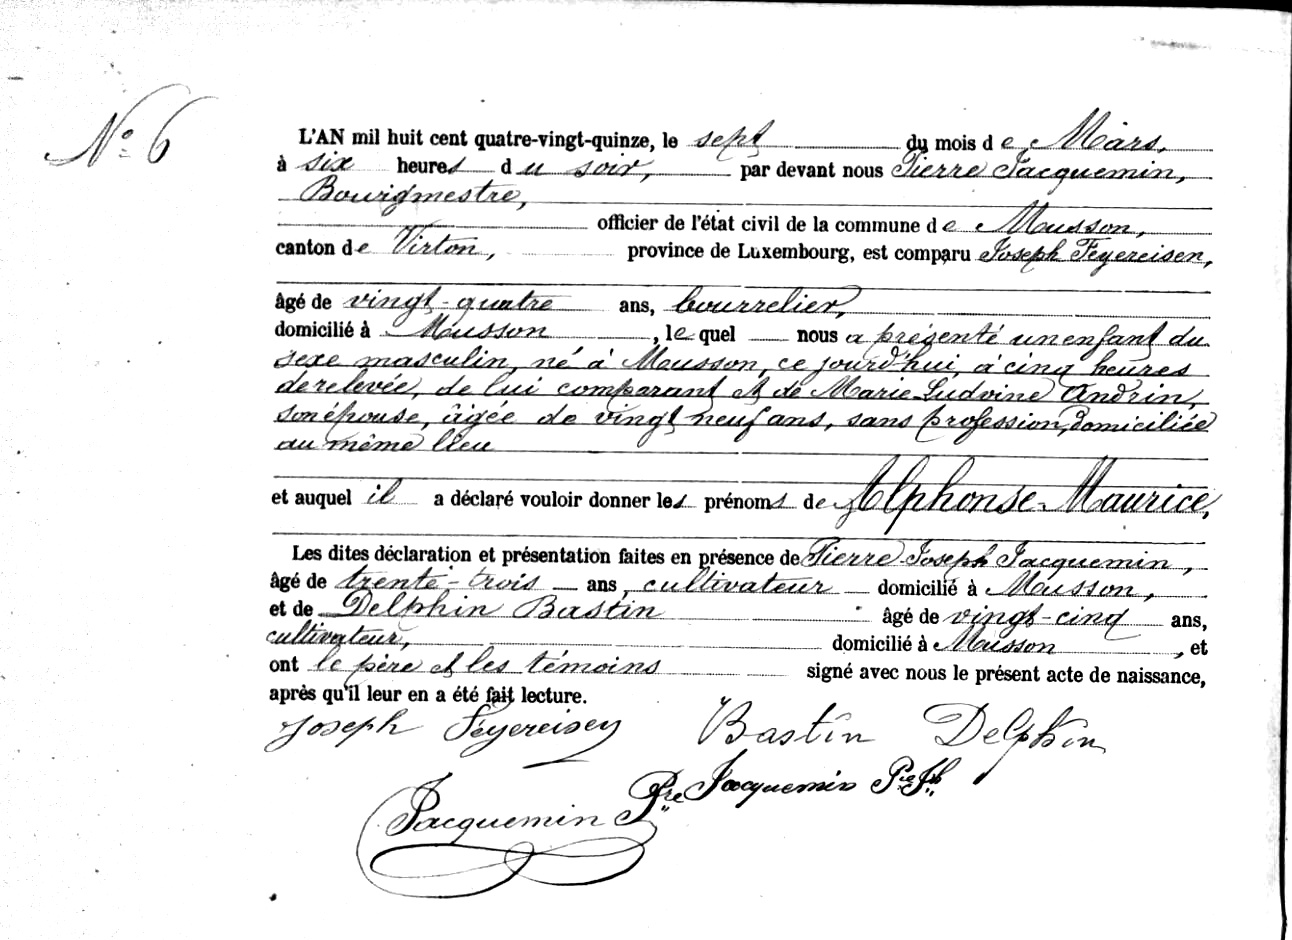 N° 6
L'AN mil huit cent quatre-vingt-quinze, le sept du mois de Mars,
à six heures du soir, par devant nous Pierre Jacquemin,
Bourgmestre,
officier de l'état civil de la commune de Musson,
canton de Virton, province de Luxembourg, est comparu Joseph Feyereisen,
âgé de vingt-quatre ans, bourrelier,
domicilié à Musson, lequel nous a présenté un enfant du
sexe masculin, né à Musson, ce jourd'hui, à cinq heures
de relevée, de lui comparant et de Marie-Ludvine Andrin,
son épouse, âgée de vingt neuf ans, sans profession, domiciliée
au même lieu
et auquel il a déclaré vouloir donner les prénoms de Alphonse-Maurice,
Les dites déclaration et présentation faites en présence de Pierre-Joseph Jacquemin,
âgé de trente-trois ans, cultivateur domicilié à Musson,
et de Delphin Bastin âgé de vingt-cinq ans,
cultivateur, domicilié à Musson, et
ont le père et les témoins signé avec nous le présent acte de naissance,
après qu'il leur en a été fait lecture.
Joseph Feyereisen Bastin Delphin
Jacquemin Pre Jph
Jacquemin Pre